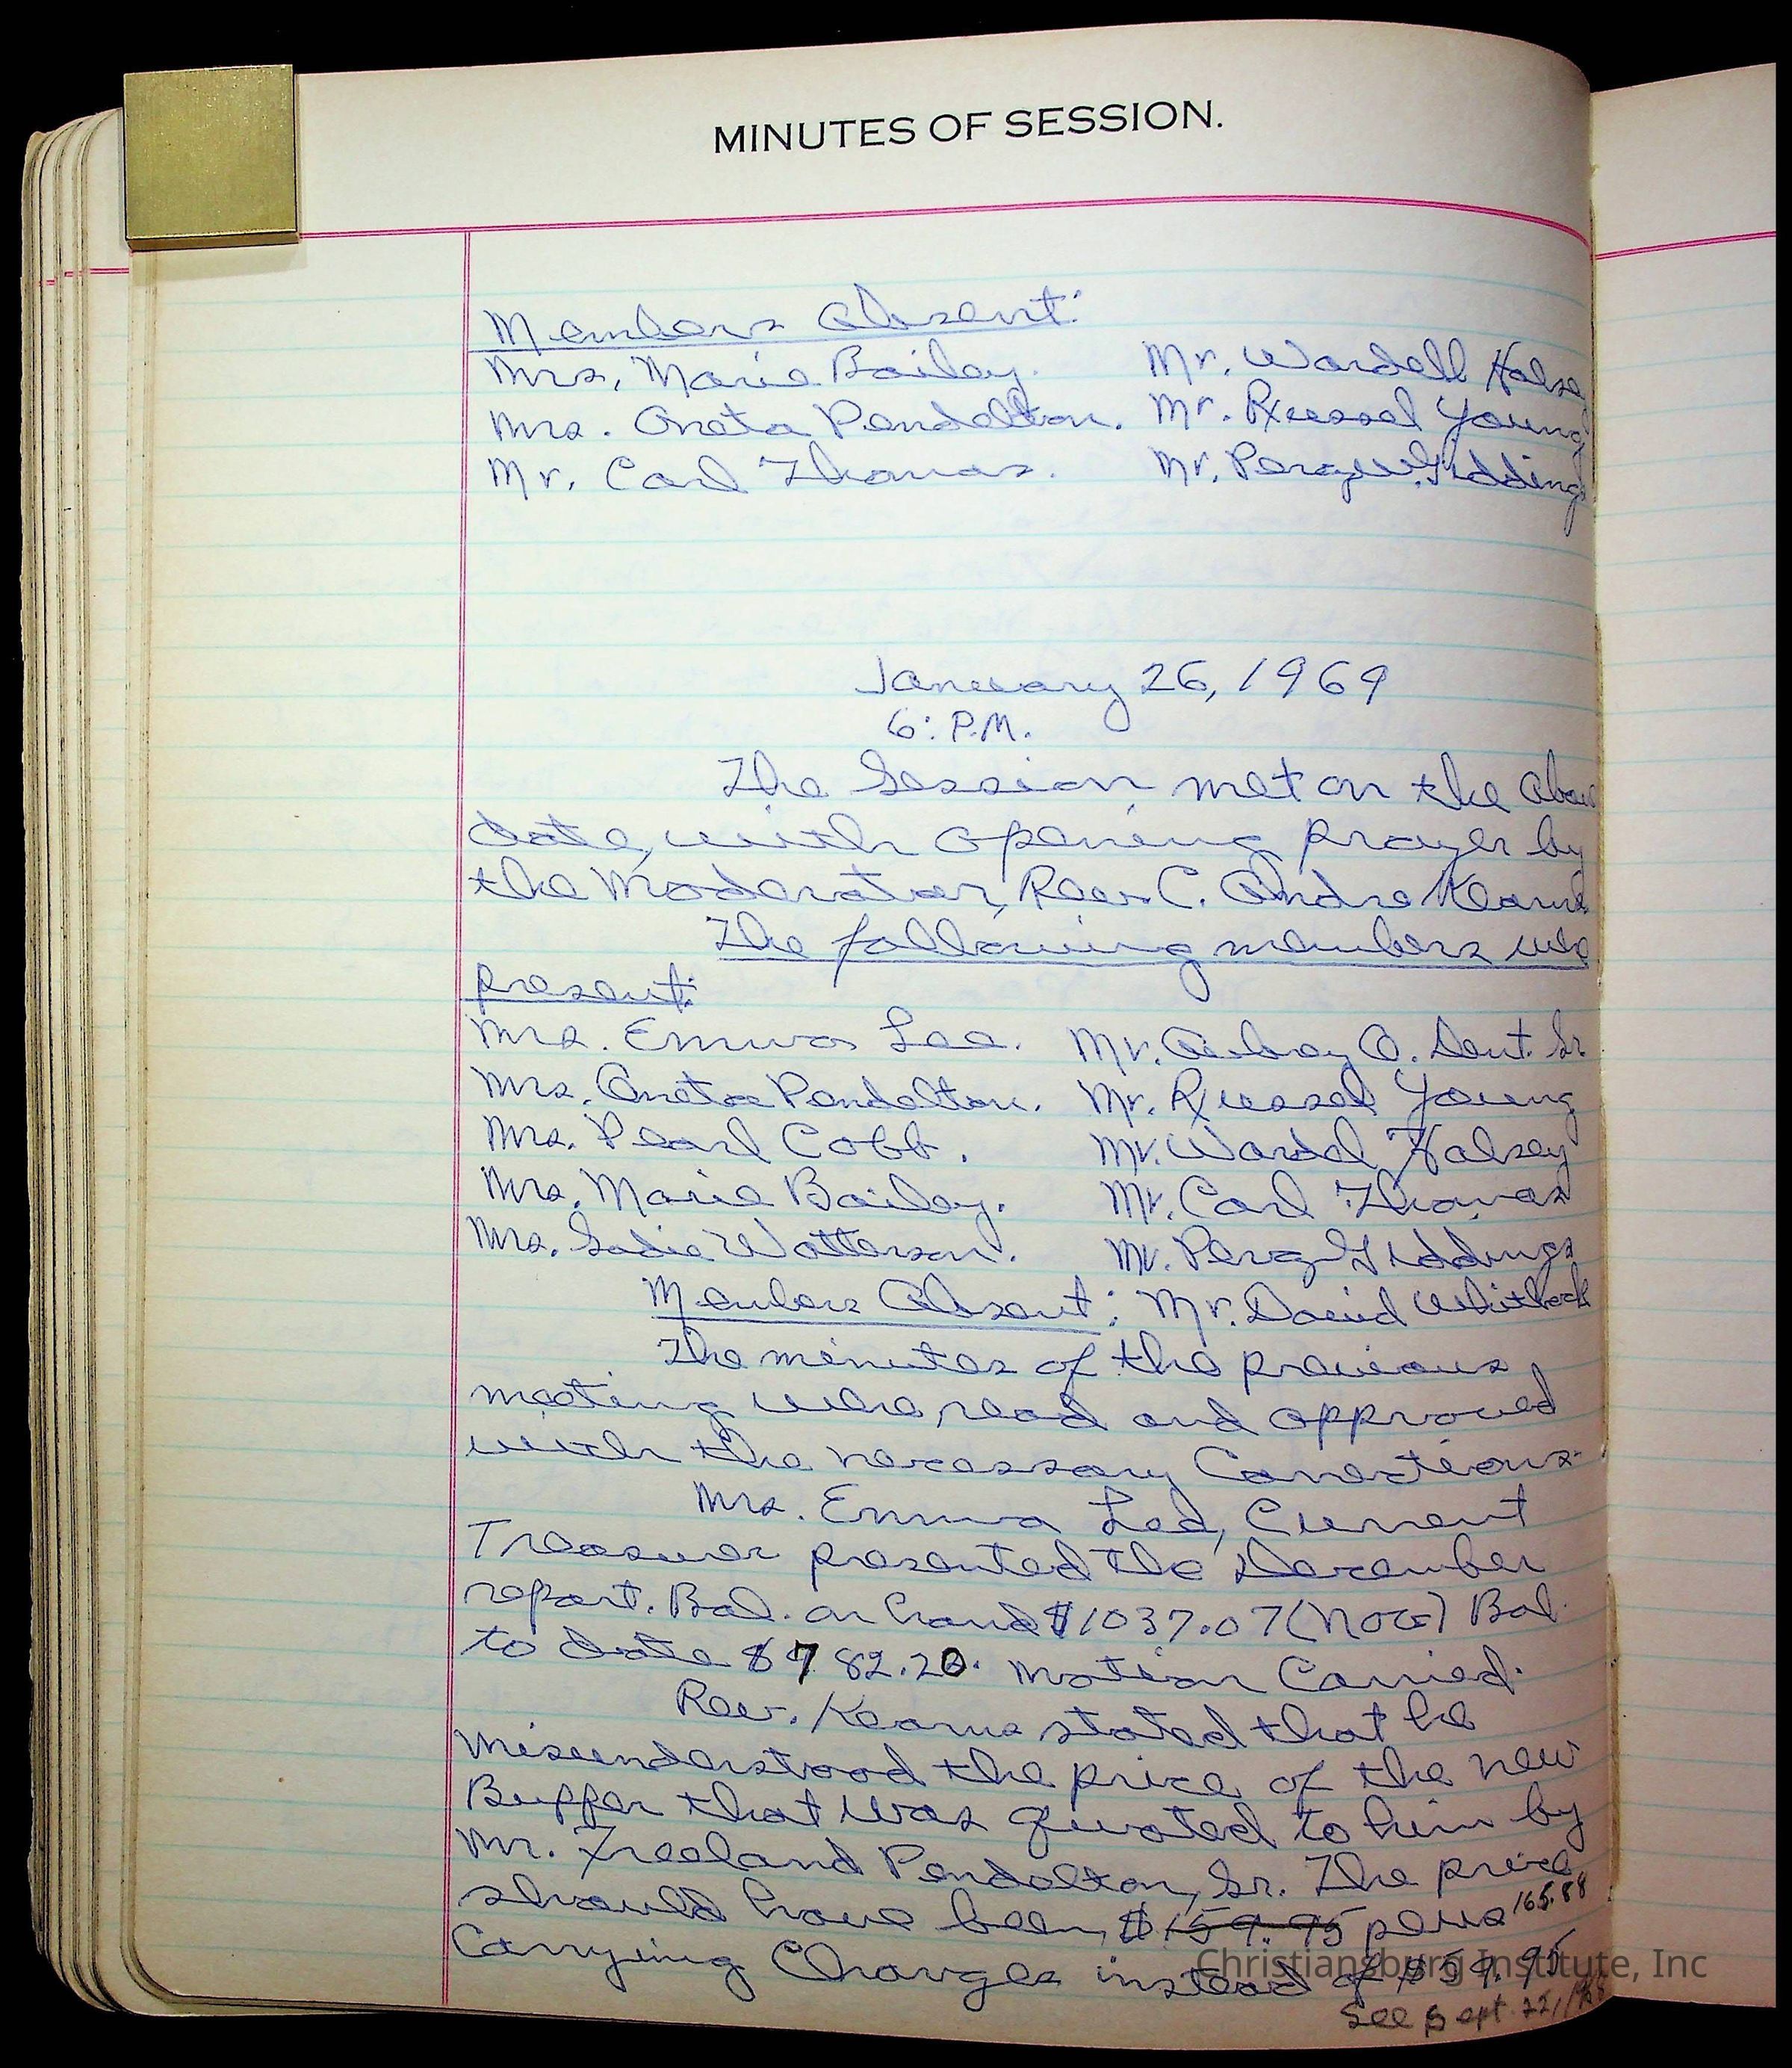 MINUTES OF SESSION.
Members Absent:
Mrs. Marie Bailey. Mr. Wardell Halsey
Mrs. Oneta Pendelton. Mr. Russel Young
Mr. Carl Thomas. Mr. Percy W. Giddings
January 26, 1969
6: P.M.
The Session met on the above
date, with opening prayer by
the Moderator, Rev. C. Andre Kearns
The following members were
present:
Mrs. Emma Lee. Mr. Aubrey O. Dent. Sr
Mrs. Oneta Pendelton. Mr. Russel Young
Mrs. Pearl Cobb. Mr. Wardel Halsey
Mrs. Marie Bailey. Mr. Carl Thomas
Mrs. Sadie Watterson. Mr. Percy Giddings
Members Absent: Mr. David Whitlock
The minutes of the previous
meeting were read and approved
with the necessary Corrections.
Mrs. Emma Lee, Current
Treasurer presented the December
report. Bal. on hand $1037.07 (Nov) Bal.
to date $782.20. Motion Carried.
Rev. Kearns stated that he
misunderstood the price of the new
Buffer that was quoted to him by
Mr. Freeland Pendelton, Sr. The price
should have been $159.95 plus 165.88
Carrying Charges instead of $59.95
See Sept. 22,
Christiansburg Institute, Inc